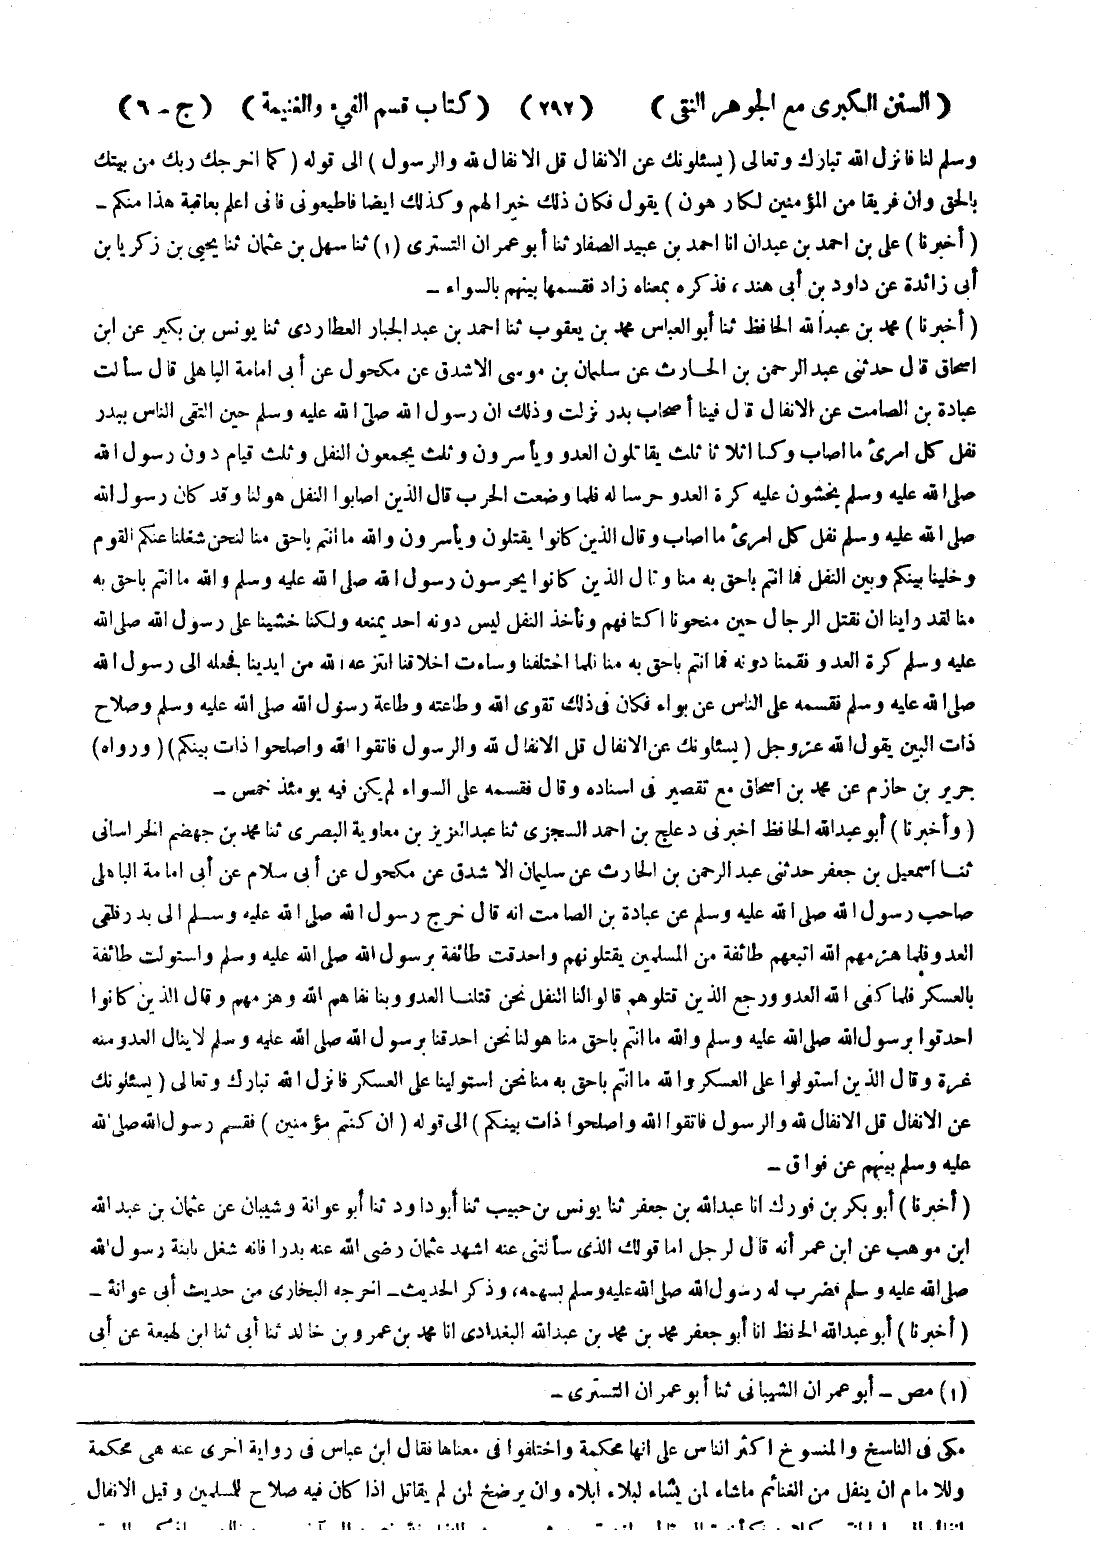 ( السنن الكبرى مع الجوهر النقى ) ( ٢٩٢ ) ( كتاب قسم الفيء والغنيمة ) ( ج - ٦ )
وسلم لنا فانزل الله تبارك وتعالى ( يسئلونك عن الانفال قل الانفال لله والرسول ) الى قوله ( كما اخرجك ربك من بيتك
بالحق وان فريقا من المؤمنين لكارهون ) يقول فكان ذلك خيرا لهم وكذلك ايضا فاطيعونى فانى اعلم بعاقبة هذا منكم -
( أخبرنا ) على بن احمد بن عبدان انا احمد بن عبيد الصفار ثنا أبو عمران التسترى (١) ثنا سهل بن عثمان ثنا يحيى بن زكريا بن
أبى زائدة عن داود بن أبى هند ، فذكره بمعناه زاد فقسمها بينهم بالسواء -
( أخبرنا ) محمد بن عبدالله الحافظ ثنا أبو العباس محمد بن يعقوب ثنا احمد بن عبد الجبار العطاردى ثنا يونس بن بكير عن ابن
اسحاق قال حدثنى عبد الرحمن بن الحارث عن سليمان بن موسى الاشدق عن مكحول عن أبى امامة الباهلى قال سألت
عبادة بن الصامت عن الانفال قال فينا أصحاب بدر نزلت وذلك ان رسول الله صلى الله عليه وسلم حين التقى الناس ببدر
نفل كل امرئ ما اصاب وكنا اثلاثا ثلث يقاتلون العدو ويأسرون وثلث يجمعون النفل وثلث قيام دون رسول الله
صلى الله عليه وسلم يخشون عليه كرة العدو حرسا له فلما وضعت الحرب قال الذين اصابوا النفل هو لنا وقد كان رسول الله
صلى الله عليه وسلم نفل كل امرئ ما اصاب وقال الذين كانوا يقتلون ويأسرون والله ما انتم باحق منا لنحن شغلنا عنكم القوم
وخلينا بينكم وبين النفل فما انتم باحق به منا وقال الذين كانوا يحرسون رسول الله صلى الله عليه وسلم والله ما انتم باحق به
منا لقد راينا ان نقتل الرجال حين منحونا اكتافهم ونأخذ النفل ليس دونه احد يمنعه ولكنا خشينا على رسول الله صلى الله
عليه وسلم كرة العدو فقمنا دونه فما انتم باحق به منا فلما اختلفنا وساءت اخلاقنا انتزعه الله من ايدينا فجعله الى رسول الله
صلى الله عليه وسلم فقسمه على الناس عن بواء فكان فى ذلك تقوى الله وطاعته وطاعة رسول الله صلى الله عليه وسلم وصلاح
ذات البين يقول الله عز وجل ( يسئلونك عن الانفال قل الانفال لله والرسول فاتقوا الله واصلحوا ذات بينكم ) ( ورواه )
جرير بن حازم عن محمد بن اسحاق مع تقصير فى اسناده وقال فقسمه على السواء لم يكن فيه يومئذ خمس -
( وأخبرنا ) أبو عبدالله الحافظ اخبرنى دعلج بن احمد السجزى ثنا عبدالعزيز بن معاوية البصرى ثنا محمد بن جهضم الخراسانى
ثنا اسمعيل بن جعفر حدثنى عبد الرحمن بن الحارث عن سليمان الاشدق عن مكحول عن أبى سلام عن أبى امامة الباهلى
صاحب رسول الله صلى الله عليه وسلم عن عبادة بن الصامت انه قال خرج رسول الله صلى الله عليه وسلم الى بدر فلقى
العدو فلما هزمهم الله اتبعهم طائفة من المسلمين يقتلونهم واحدقت طائفة برسول الله صلى الله عليه وسلم واستولت طائفة
بالعسكر فلما كفى الله العدو ورجع الذين قتلوهم قالوا لنا النفل نحن قتلنا العدو وبنا نفاهم الله وهزمهم وقال الذين كانوا
احدقوا برسول الله صلى الله عليه وسلم والله ما انتم باحق منا هو لنا نحن احدقنا برسول الله صلى الله عليه وسلم لا ينال العدو منه
غرة وقال الذين استولوا على العسكر والله ما انتم باحق به منا نحن استولينا على العسكر فانزل الله تبارك وتعالى ( يسئلونك
عن الانفال قل الانفال لله والرسول فاتقوا الله واصلحوا ذات بينكم ) الى قوله ( ان كنتم مؤمنين ) فقسم رسول الله صلى الله
عليه وسلم بينهم عن فواق -
( أخبرنا ) أبو بكر بن فورك انا عبدالله بن جعفر ثنا يونس بن حبيب ثنا أبو داود ثنا أبو عوانة وشيبان عن عثمان بن عبد الله
ابن موهب عن ابن عمر أنه قال لرجل اما قولك الذى سألتنى عنه اشهد عثمان رضى الله عنه بدرا فانه شغل بابنة رسول الله
صلى الله عليه وسلم فضرب له رسول الله صلى الله عليه وسلم بسهمه، وذكر الحديث - اخرجه البخارى من حديث أبى عوانة -
( أخبرنا ) أبو عبدالله الحافظ انا أبو جعفر محمد بن محمد بن عبدالله البغدادى انا محمد بن عمرو بن خالد ثنا أبى ثنا ابن لهيعة عن أبى
(١) مص - أبو عمران الشيبانى ثنا أبو عمران التسترى -
مكى فى الناسخ والمنسوخ اكثر الناس على انها محكمة واختلفوا فى معناها فقال ابن عباس فى رواية اخرى عنه هى محكمة
وللامام ان ينفل من الغنائم ماشاء لمن يشاء لبلاء ابلاه وان يرضخ لمن لم يقاتل اذا كان فيه صلاح للمسلمين وقيل الانفال